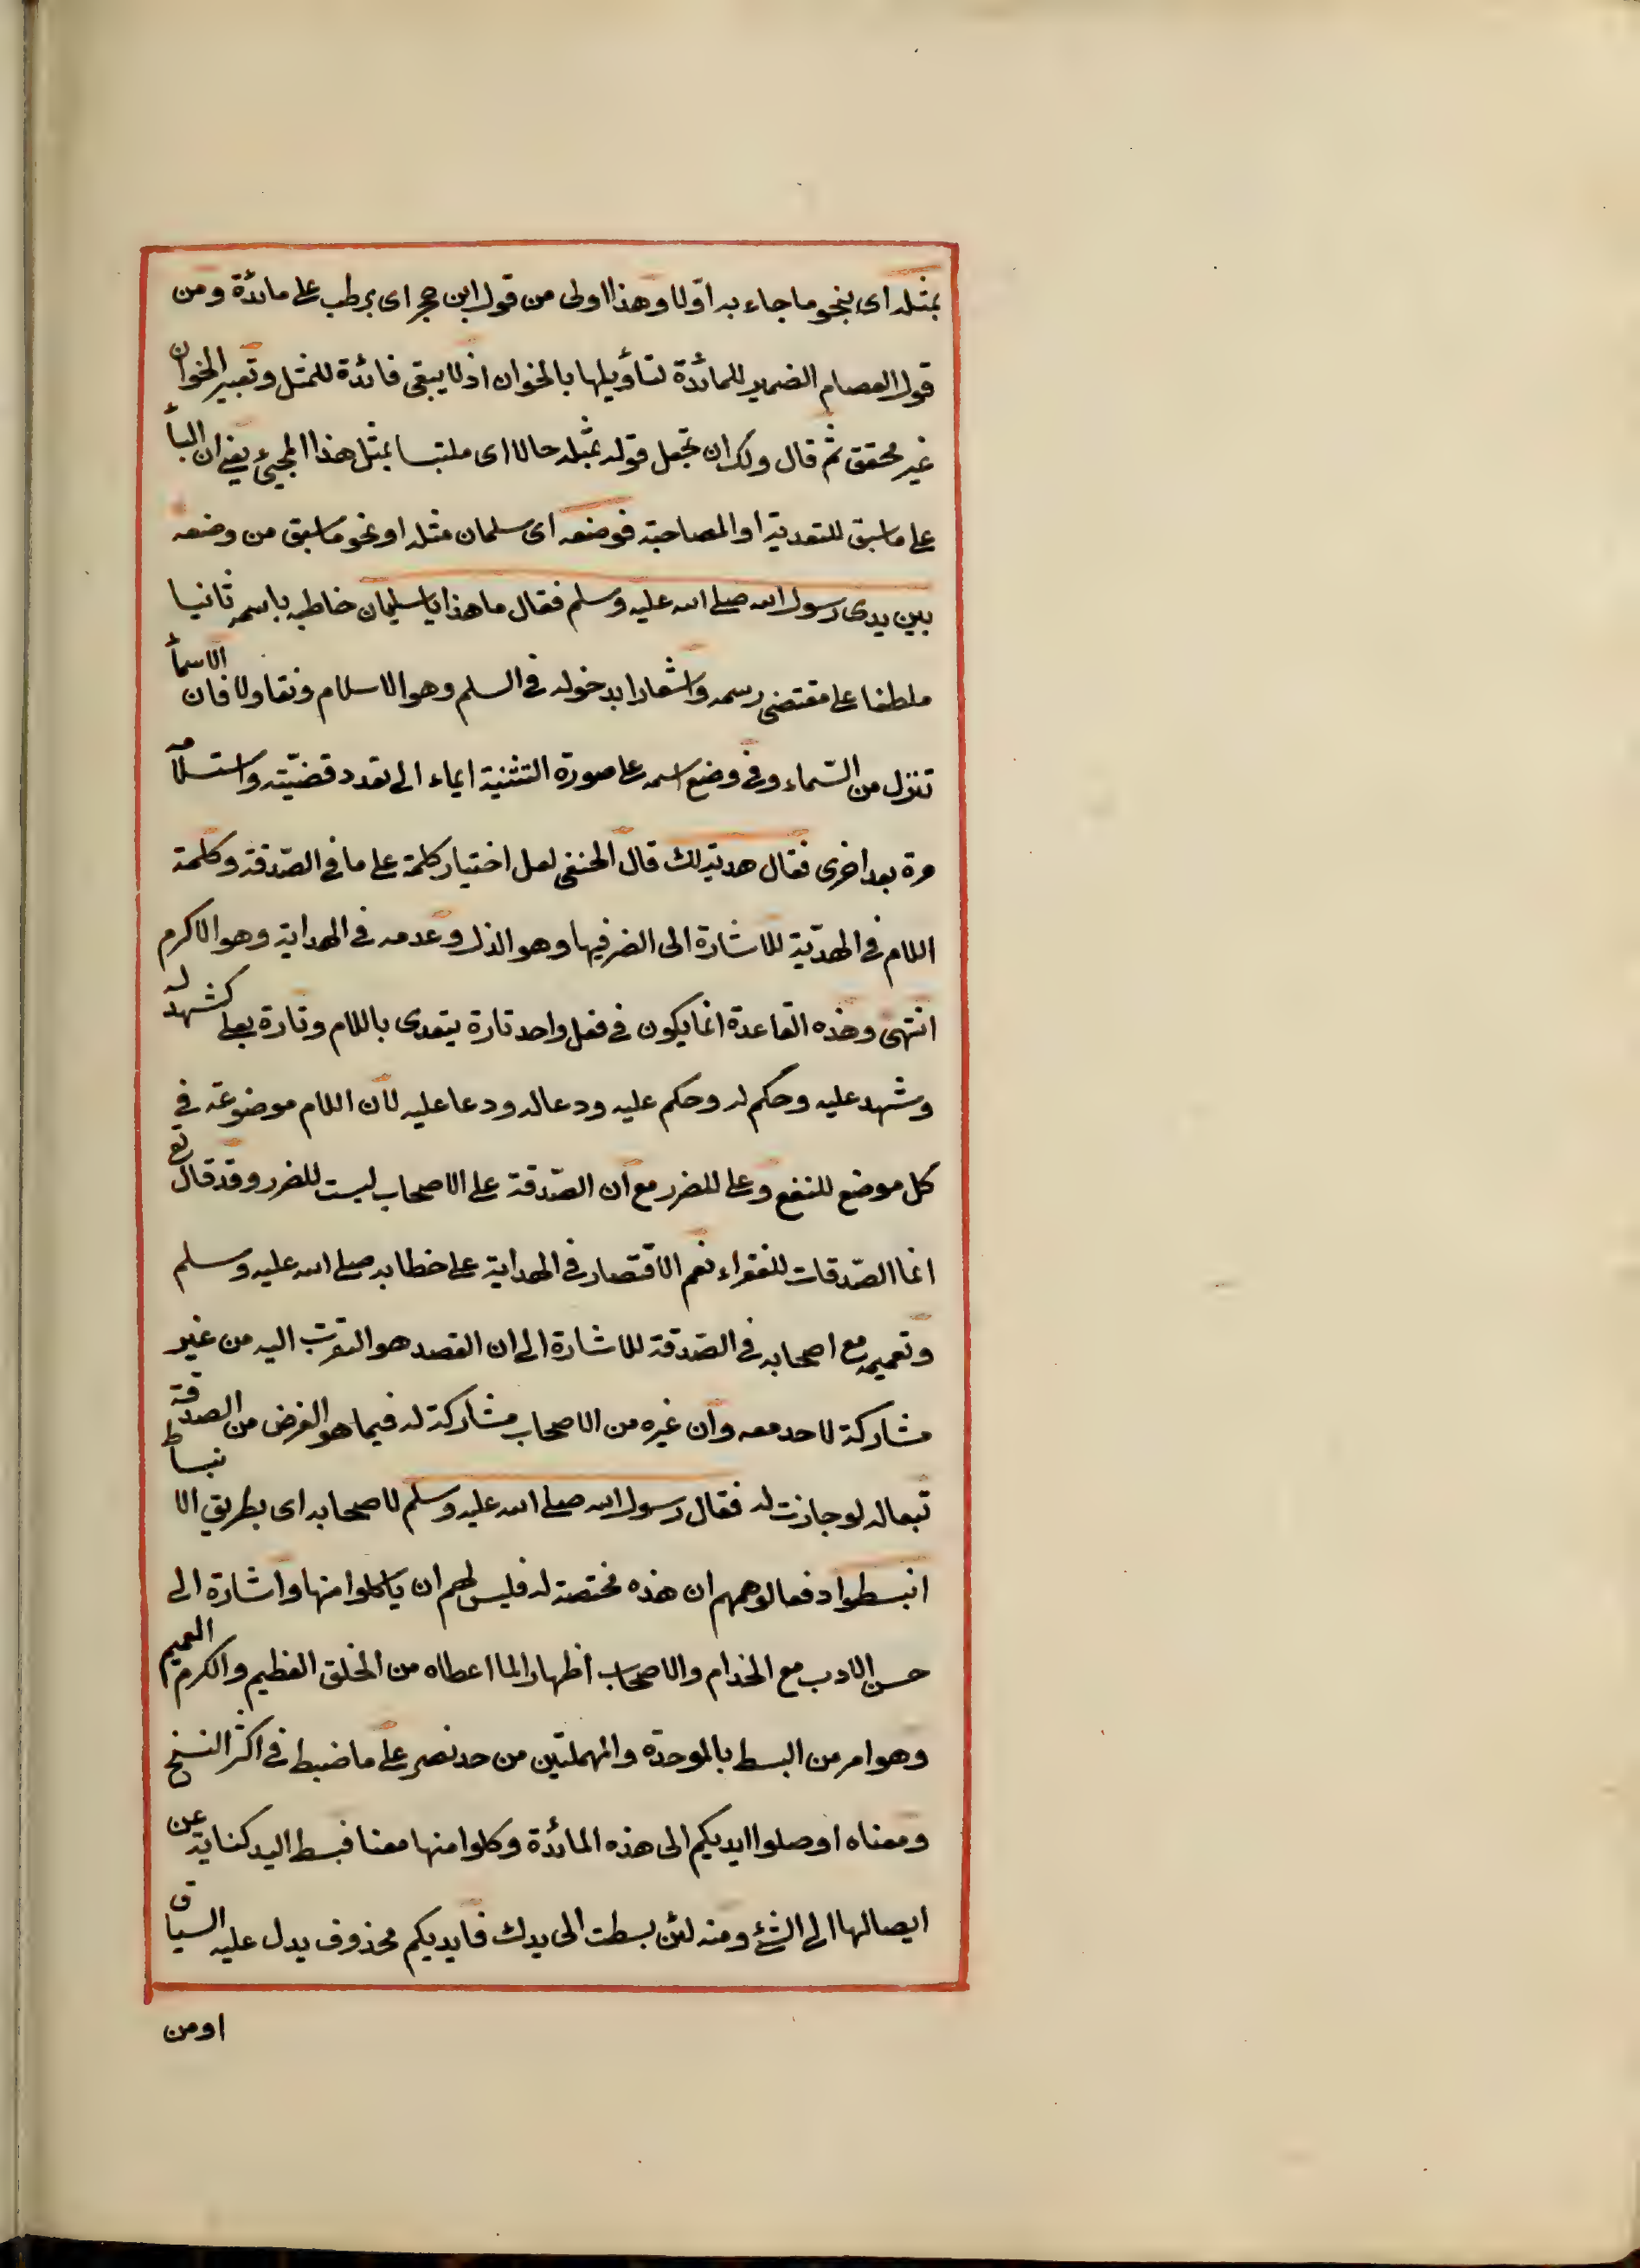 بمثله اى بنحو ما جاء به اولا وهذا اولى من قول ابن حجر اى برطب على مائدة ومن
قول العصام الضمير للمائدة لتأويلها بالخوان اذ لا يبقى فائدة للمثل وتعبير الخوان
غير محقق ثم قال ولك ان تجعل قوله بمثله حالا اى ملتبسا بمثل هذا المجيئ يعنى ان البأ
على ما سبق للتعدية او المصاحبة فوضعه اى سلمان مثله او نحو ما سبق من وضعه
بين يدى رسول الله صلى الله عليه وسلم فقال ما هذا يا سليمان خاطبه باسمه ثانيا
ملطفا على مقتضى رسمه واشعارا بدخوله فى السلم وهو الاسلام وتفاولا فان الاسمأ
تنزل من السّماء وفى وضع اسمه على صورة التثنية ايماء الى تعدد قضيّته واستسلامه
مرة بعد اخرى فقال هدية لك قال الحنفى لعل اختيار كلمة على ما فى الصّدقة وكلمة
اللام فى الهديّة للاشارة الى الضر فيها وهو الذل وعدمه فى الهداية وهو الاكرم
انتهى وهذه القاعدة انما يكون فى فعل واحد تارة يتعدى باللام وتارة بعلى كشهد له
وشهد عليه وحكم له وحكم عليه ودعا له ودعا عليه لان اللام موضوعة فى
كل موضع للنفع وعلى للضرر مع ان الصّدقة على الاصحاب ليست للضرر وقد قال تع
انما الصّدقات للفقراء نعم الاقتصار فى الهداية على خطابه صلى الله عليه وسلم
وتعميمه مع اصحابه فى الصّدقة للاشارة الى ان القصد هو التقرب اليه من غير
مشاركة لاحد معه وان غيره من الاصحاب مشاركة له فيما هو الغرض من الصدقة
تبعا له لو جازت له فقال رسول الله صلى الله عليه وسلم لاصحابه اى بطريق الانبساط
انبسطوا دفعا لوهمهم ان هذه مختصة له فليس لهم ان ياكلوا منها واشارة الى
حسن الادب مع الخدام والاصحاب اظهارا لما اعطاه من الخلق العظيم والكرم العميم
وهو امر من البسط بالموحدة والمهملتين من حد نصر على ما ضبط فى اكثر النسخ
ومعناه اوصلوا ايديكم الى هذه المائدة وكلوا منها معنا فبسط اليد كناية عن
ايصالها الى الشئ ومنه لئن بسطت الى يدك فايديكم محذوف يدل عليه السياق
او من